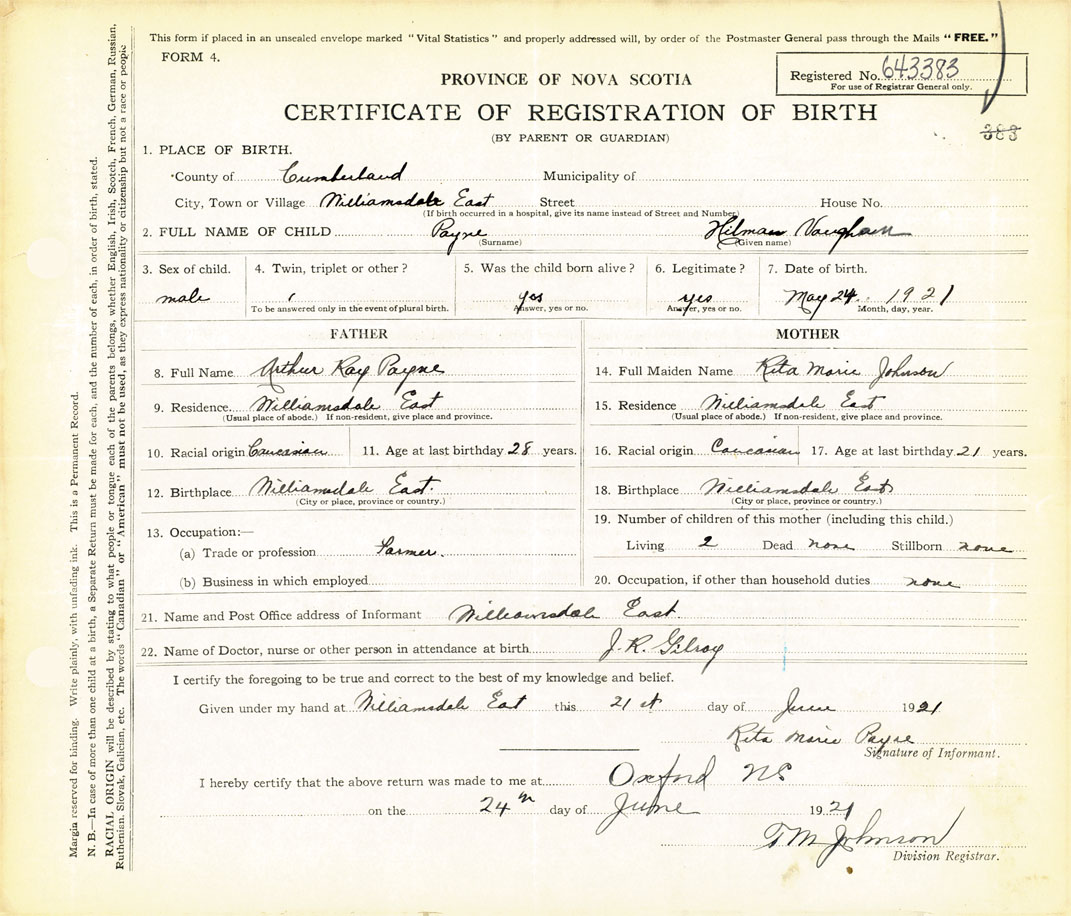 This form if placed in an unsealed envelope marked "Vital Statistics" and properly addressed will, by order of the Postmaster General pass through the Mails "FREE."
FORM 4.
Registered No. 643383
For use of Registrar General only.
PROVINCE OF NOVA SCOTIA
CERTIFICATE OF REGISTRATION OF BIRTH
(BY PARENT OR GUARDIAN)
383
1. PLACE OF BIRTH.
County of Cumberland Municipality of
City, Town or Village Williamsdale East Street House No.
(If birth occurred in a hospital, give its name instead of Street and Number)
2. FULL NAME OF CHILD Payne Hilman Vaughan
(Surname) (Given name)
3. Sex of child. 4. Twin, triplet or other? 5. Was the child born alive? 6. Legitimate? 7. Date of birth.
male yes yes May 24 1921
To be answered only in the event of plural birth. Answer, yes or no. Answer, yes or no. Month, day, year.
FATHER MOTHER
8. Full Name Arthur Ray Payne 14. Full Maiden Name Rita Marie Johnson
9. Residence Williamsdale East 15. Residence Williamsdale East
(Usual place of abode.) If non-resident, give place and province. (Usual place of abode.) If non-resident, give place and province.
10. Racial origin Caucasian 11. Age at last birthday 28 years. 16. Racial origin Caucasian 17. Age at last birthday 21 years.
12. Birthplace Williamsdale East. 18. Birthplace Williamsdale East
(City or place, province or country.) (City or place, province or country.)
13. Occupation:— 19. Number of children of this mother (including this child.)
(a) Trade or profession Farmer. Living 2 Dead none Stillborn none
(b) Business in which employed 20. Occupation, if other than household duties none
21. Name and Post Office address of Informant Williamsdale East.
22. Name of Doctor, nurse or other person in attendance at birth J. R. Gilroy
I certify the foregoing to be true and correct to the best of my knowledge and belief.
Given under my hand at Williamsdale East this 21st day of June 1921
Rita Marie Payne
Signature of Informant.
I hereby certify that the above return was made to me at Oxford NS
on the 24th day of June 1921
T M Johnson
Division Registrar.
Margin reserved for binding. Write plainly, with unfading ink. This is a Permanent Record.
N. B.—In case of more than one child at a birth, a Separate Return must be made for each, and the number of each, in order of birth, stated.
RACIAL ORIGIN will be described by stating to what people or tongue each of the parents belongs, whether English, Irish, Scotch, French, German, Russian,
Ruthenian, Slovak, Galician, etc. The words "Canadian" or "American" must not be used, as they express nationality or citizenship but not a race or people